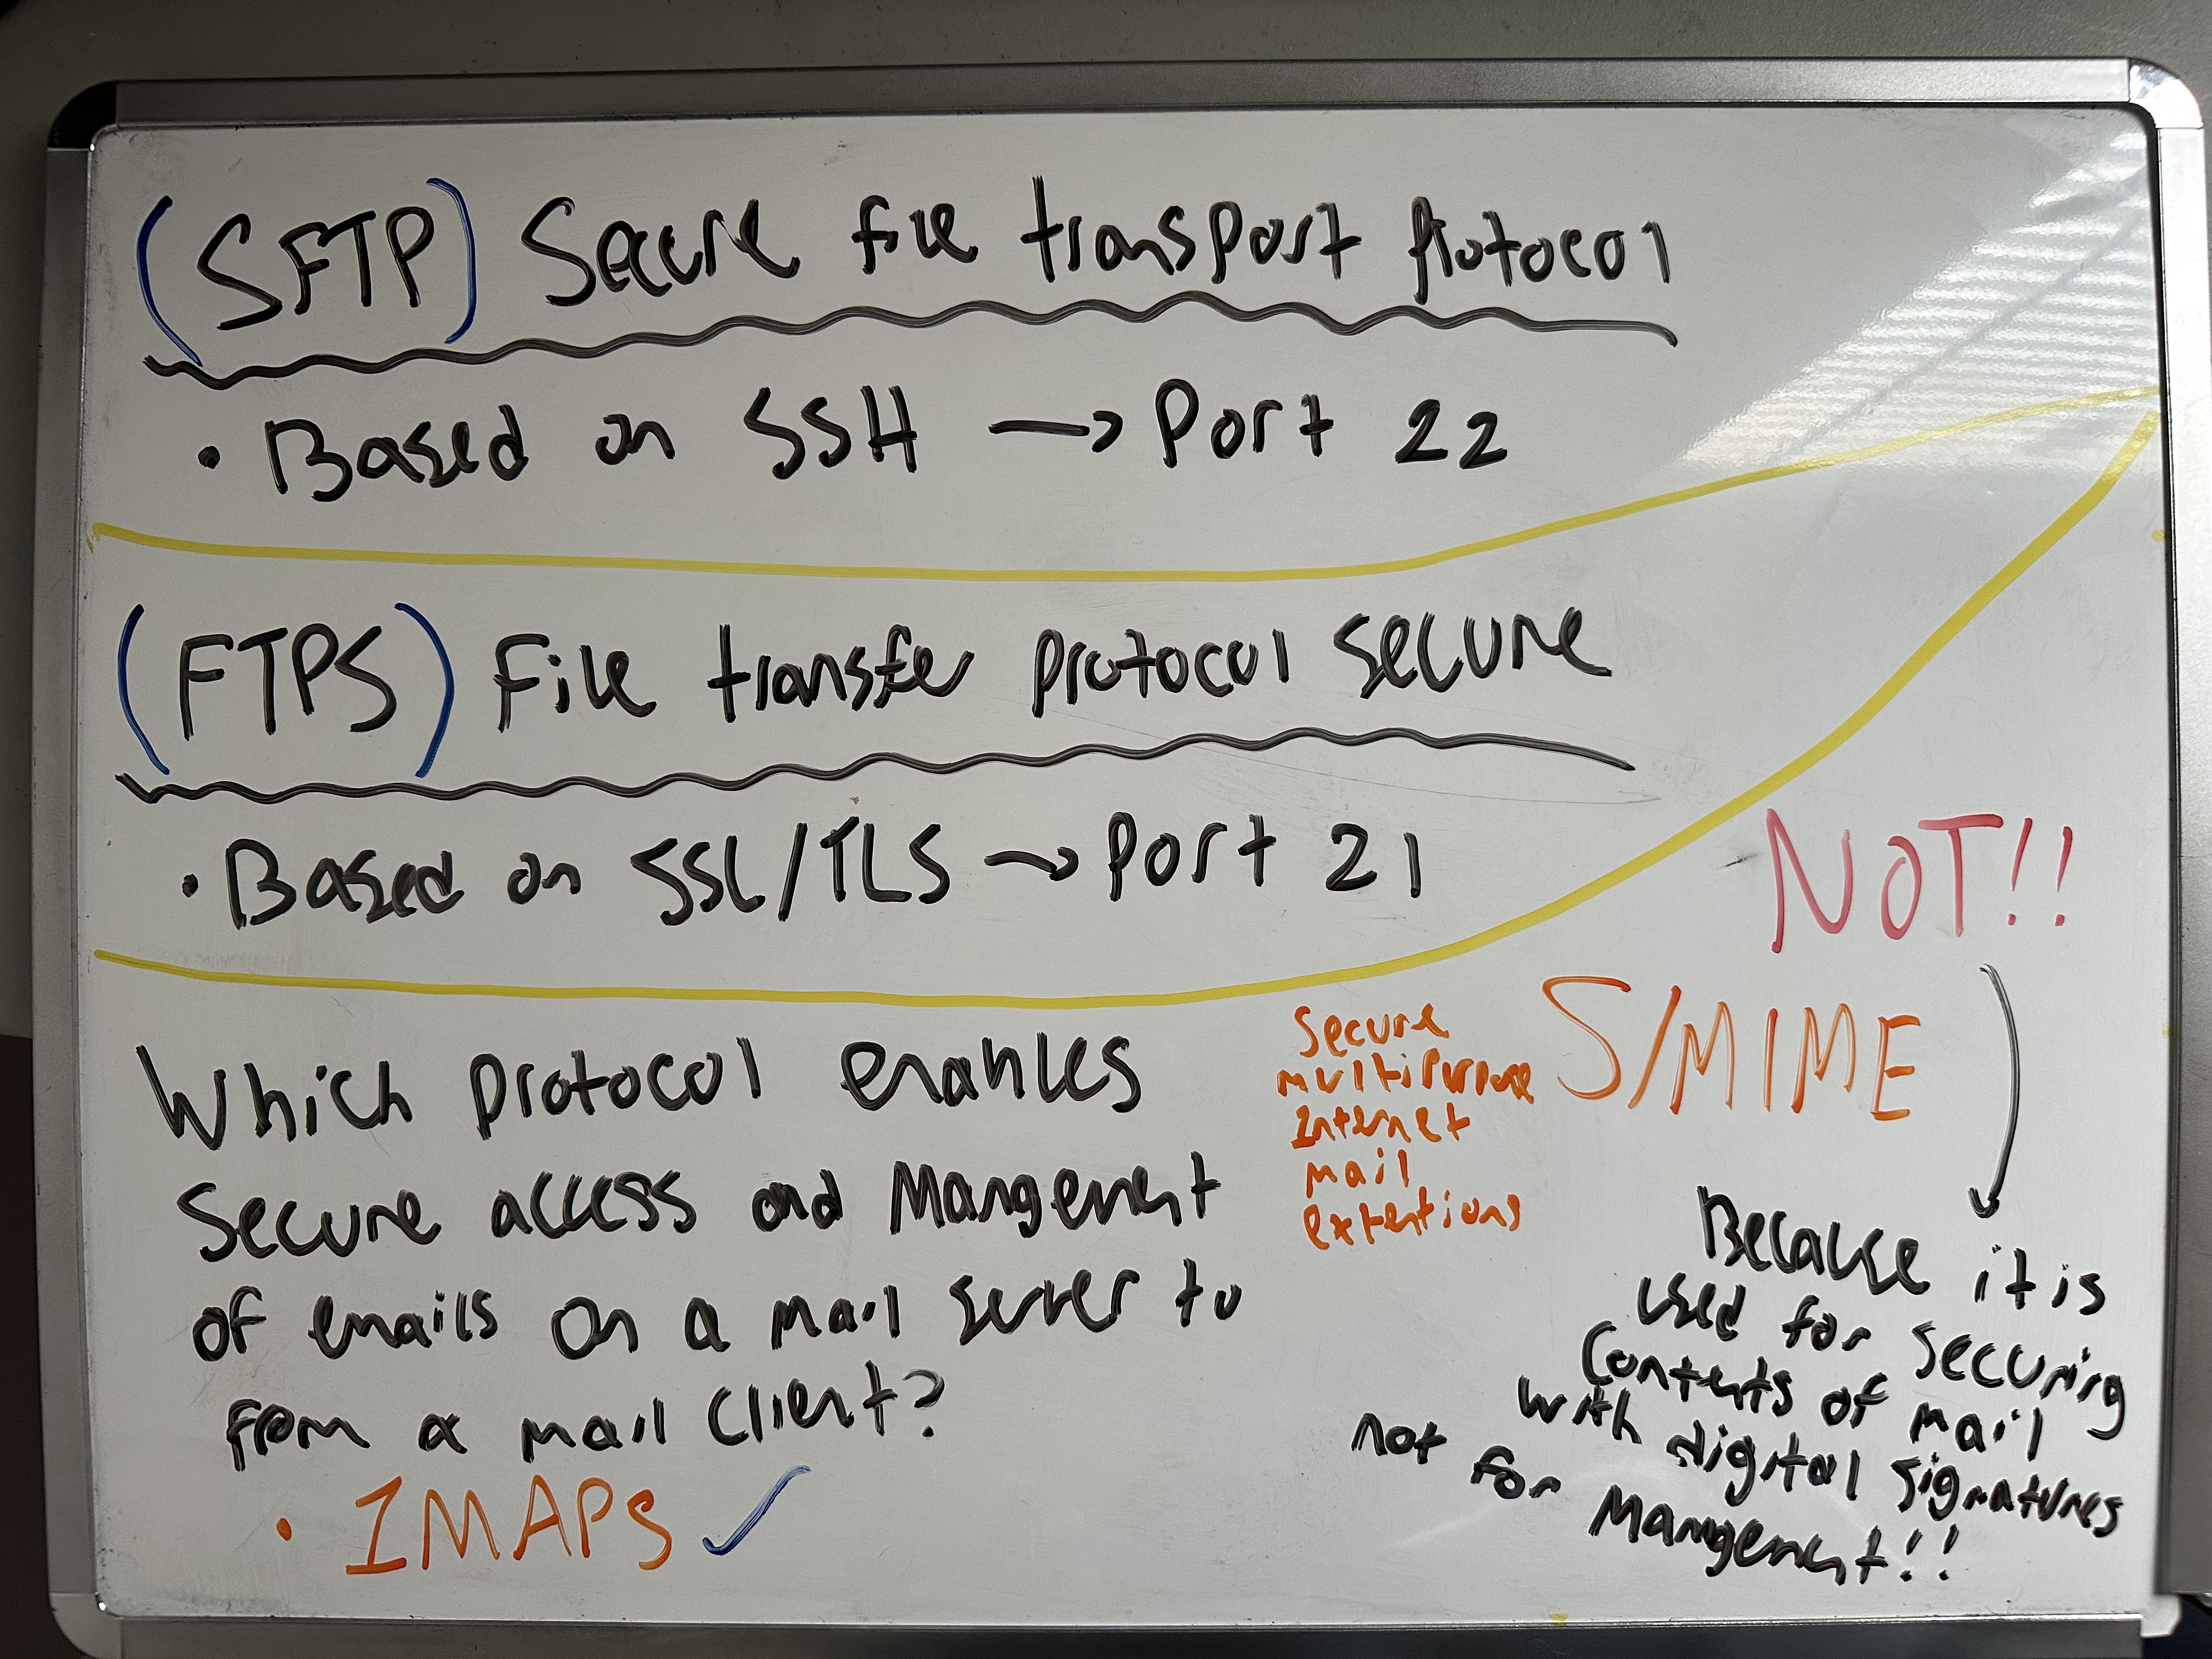 (SFTP) Secure file transport protocol
• Based on SSH → Port 22
(FTPS) File transfer protocol secure
• Based on SSL/TLS → Port 21
Which protocol enables
Secure access and Mangement
of emails on a mail server to
from a mail client?
• IMAPS ✓
NOT!!
S/MIME
Secure
multipurpose
Internet
mail
extentions
Because it is
used for securing
Contents of mail
with digital signatures
not for Mangement!!